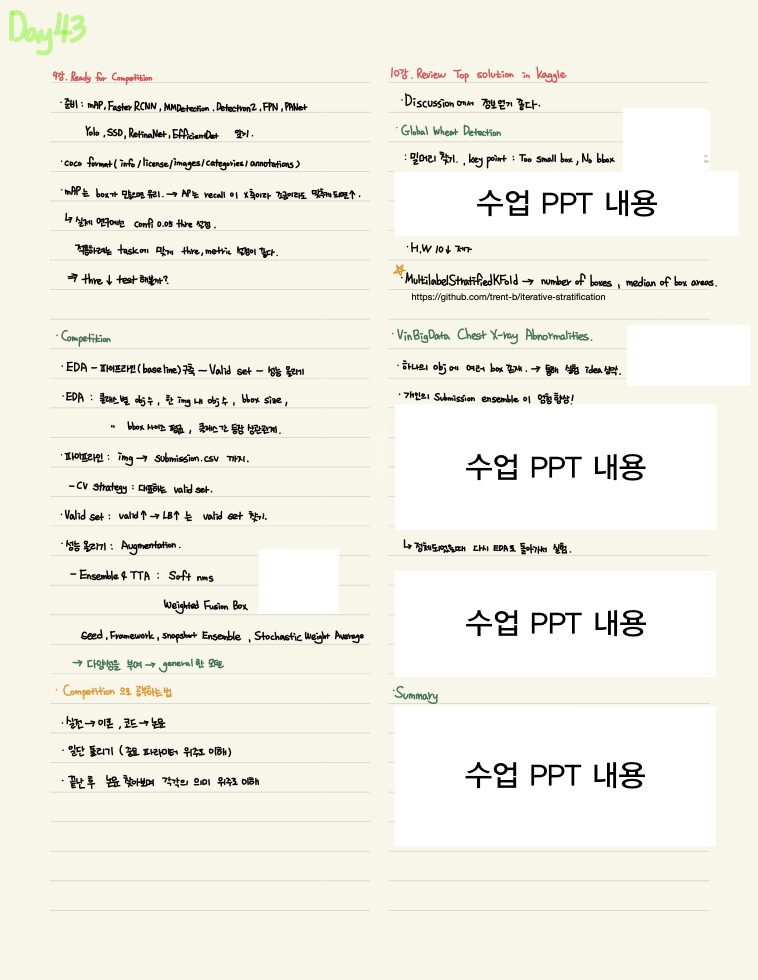 Day43
9강. Ready for Competition
· 준비 : mAP, Faster RCNN, MMDetection, Detectron2, FPN, PANet
Yolo, SSD, RetinaNet, EfficientDet 알기.
· coco format ( info / license / images / categories / annotations )
· mAP는 box가 많으면 유리. → AP는 recall 이 x축이라 조금이라도 맞춰도되면↑.
↳ 실제 연구에선 conf) 0.05 thre 설정.
적용하려는 task에 맞게 thre, metric 설정이 옳다.
⇒ thre ↓ test 해볼까?
· Competition
· EDA – 파이프라인(baseline)구축 – Valid set – 성능 올리기
· EDA : 클래스별 obj수, 한 img 내 obj 수, bbox size,
" bbox 사이즈 평균, 클래스 간 등장 상관관계.
· 파이프라인 : img → submission.csv 까지.
– CV strategy : 대표하는 valid set.
· Valid set : valid↑ → LB↑ 는 valid set 찾기.
· 성능 올리기 : Augmentation.
– Ensemble & TTA : Soft nms
Weighted Fusion Box
Seed, Framework, snapshot Ensemble, Stochastic Weight Average
→ 다양성을 부여 → general한 모델
· Competition 으로 공부하는법
· 실전 → 이론, 코드 → 논문
· 일단 돌리기 ( 중요 파라미터 위주로 이해)
· 끝난 후 논문 찾아보며 각각의 의미 위주로 이해
10강. Review Top solution in Kaggle
· Discussion에서 정보얻기 좋다.
· Global Wheat Detection
: 밀머리 찾기. , key point : Too small box, No bbox
수업 PPT 내용
· H.W 10↓ 제거
☆· MultilabelStratifiedKFold → number of boxes, median of box areas.
https://github.com/trent-b/iterative-stratification
· VinBigData Chest X-ray Abnormalities.
· 하나의 obj 에 여러 box 존재. → 돌려 실험 idea 생각.
· 개인의 Submission ensemble 이 엄청향상!
수업 PPT 내용
↳ 정체되었을때 다시 EDA로 돌아가서 실험.
수업 PPT 내용
· Summary
수업 PPT 내용